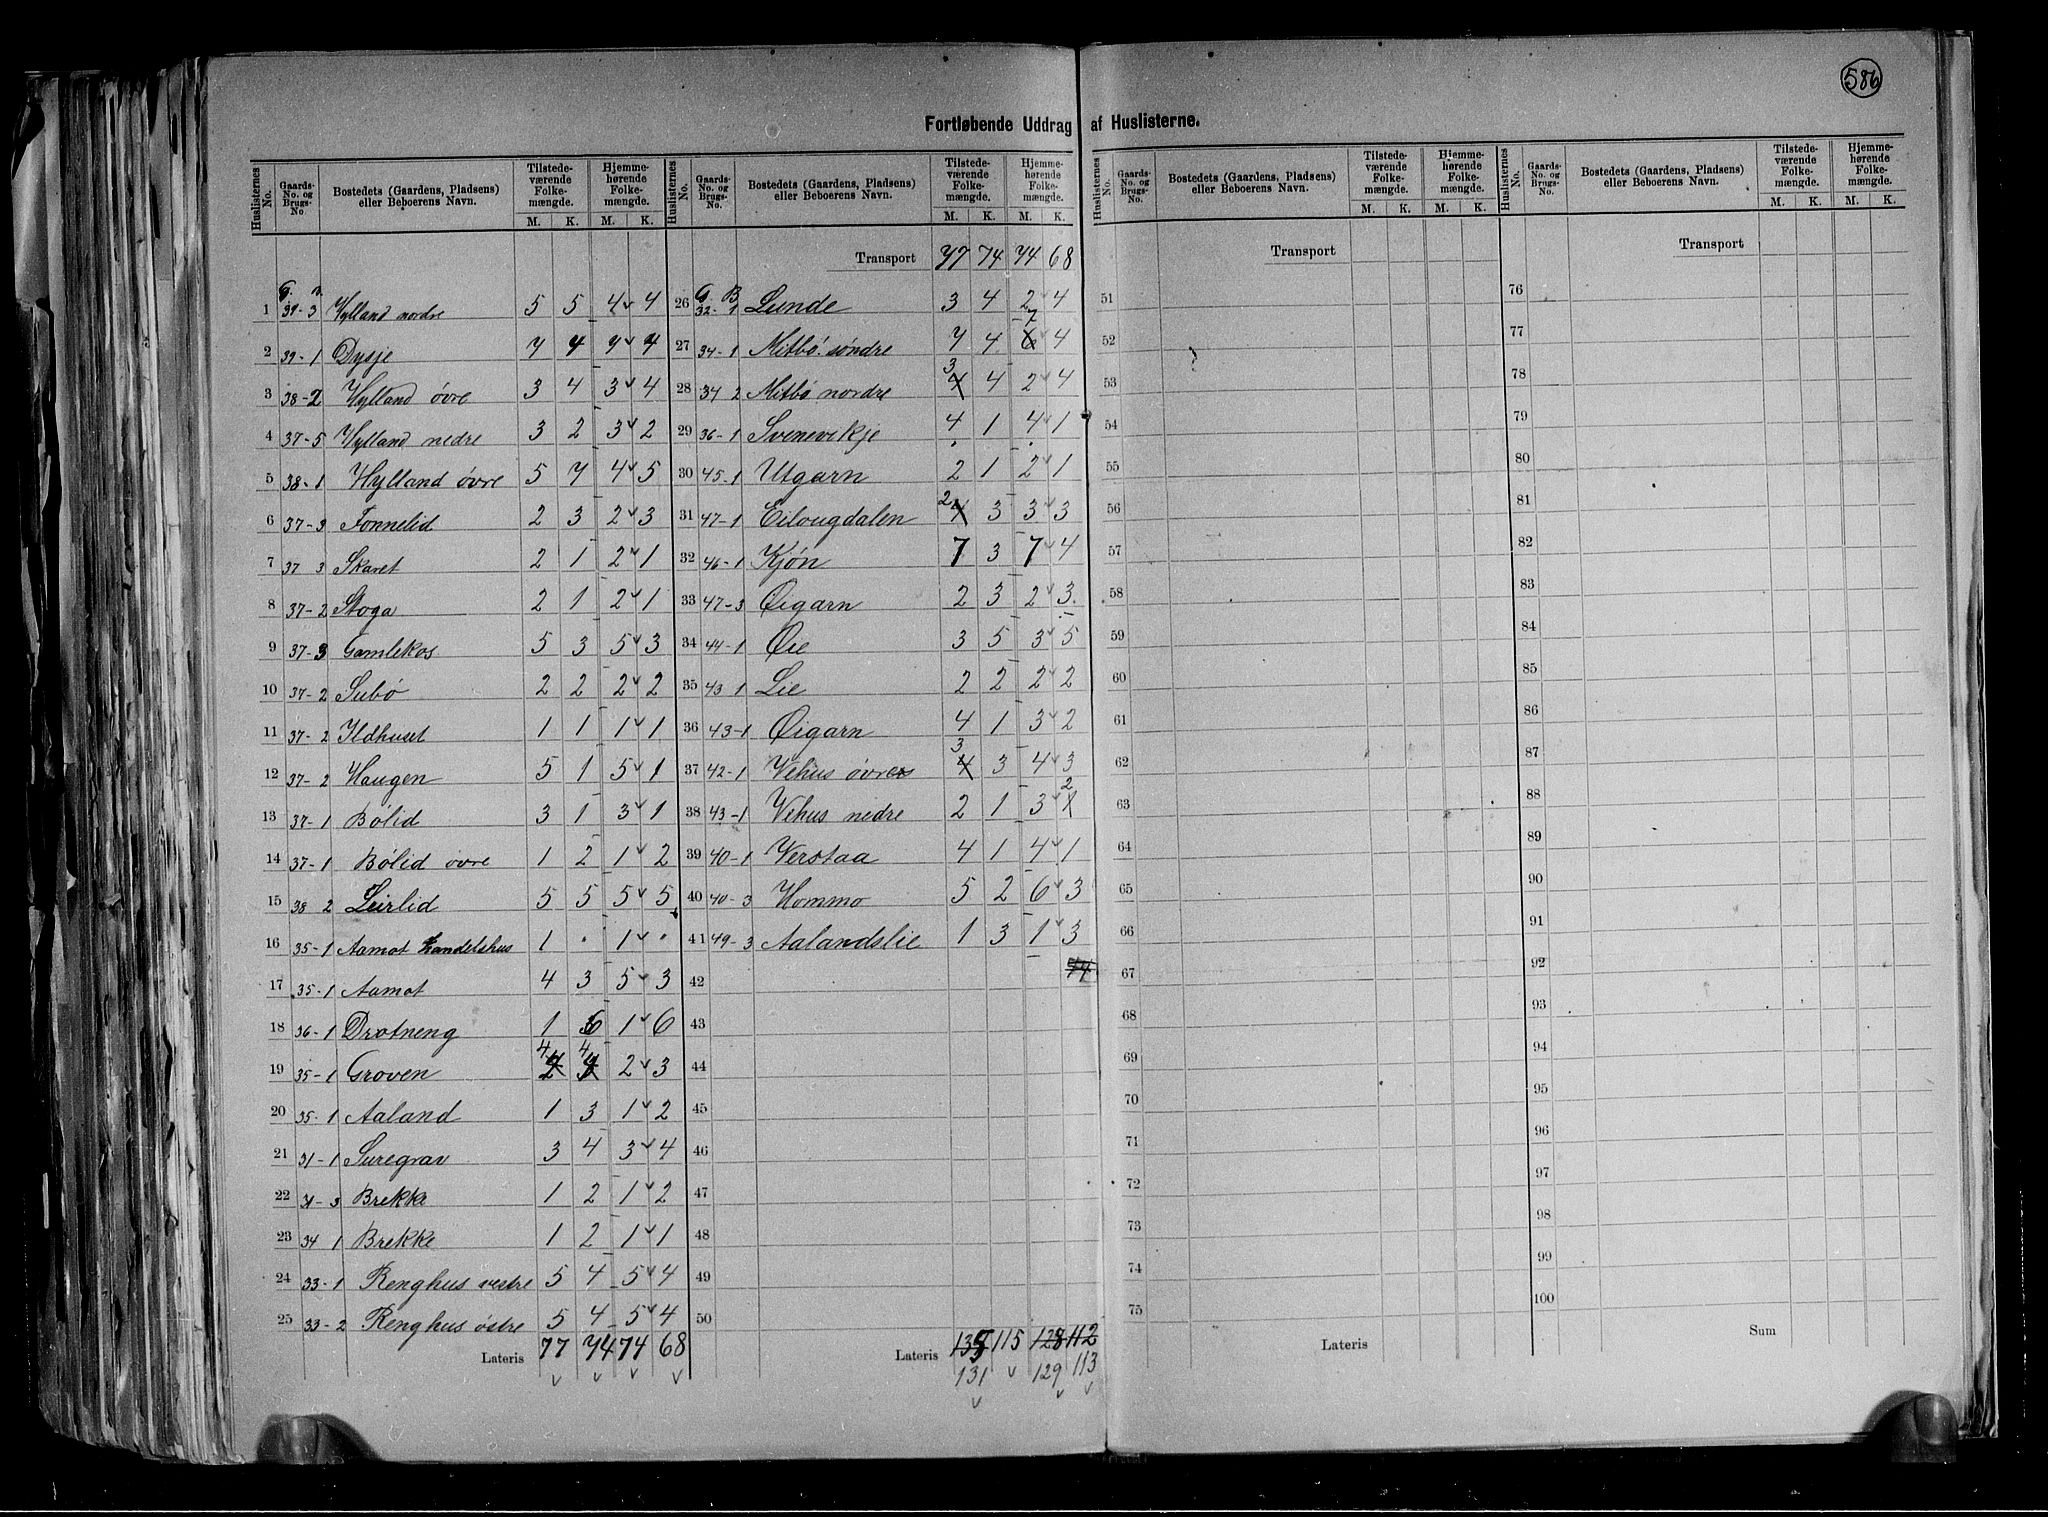 586
Fortløbende Uddrag af Huslisterne.
Huslisternes No. Gaards-No. og Brugs-No. Bostedets (Gaardens, Pladsens) eller Beboerens Navn. Tilstedeværende Folkemængde. M. K. Hjemmehørende Folkemængde. M. K.
G. B.
1 39-3 Hylland nordre 5 5 4 4
2 39-1 Dysje 7 4 7 4
3 38-2 Hylland øvre 3 4 3 4
4 37-5 Hylland nedre 3 2 3 2
5 38-1 Hylland øvre 5 7 4 5
6 37-3 Fonnelid 2 3 2 3
7 37 3 Skaret 2 1 2 1
8 37-2 Stoga 2 1 2 1
9 37-3 Gamlekos 5 3 5 3
10 37-2 Subø 2 2 2 2
11 37-2 Ildhuset 1 1 1 1
12 37-2 Haugen 5 1 5 1
13 37-1 Bølid 3 1 3 1
14 37-1 Bølid øvre 1 2 1 2
15 38 2 Leirlid 5 5 5 5
16 35-1 Aamot Landelshus 1 · 1 ·
17 35-1 Aamot 4 3 5 3
18 36-1 Drotneng 1 6 1 6
19 35-1 Groven 4 4 2 3
20 35-1 Aaland 1 3 1 2
21 31-1 Suregrav 3 4 3 4
22 31-3 Brekke 1 2 1 2
23 34 1 Brekke 1 2 1 1
24 33-1 Renghus vestre 5 4 5 4
25 33-2 Renghus østre 5 4 5 4
Lateris 77 74 74 68
Huslisternes No. Gaards-No. og Brugs-No. Bostedets (Gaardens, Pladsens) eller Beboerens Navn. Tilstedeværende Folkemængde. M. K. Hjemmehørende Folkemængde. M. K.
Transport 77 74 74 68
G. B.
26 32-1 Lunde 3 4 2 4
27 34-1 Mitbø søndre 7 4 7 4
28 34 2 Mitbø nordre 3 4 2 4
29 36-1 Svenevikje 4 1 4 1
30 45-1 Utgarn 2 1 2 1
31 47-1 Eilougdalen 2 3 3 3
32 46-1 Kjøn 7 3 7 4
33 47-3 Øigarn 2 3 2 3
34 44-1 Øie 3 5 3 5
35 43 1 Lie 2 2 2 2
36 43-1 Øigarn 4 1 3 2
37 42-1 Vehus øvre 3 3 4 3
38 43-1 Vehus nedre 2 1 3 2
39 40-1 Verstaa 4 1 4 1
40 40-3 Hommo 5 2 6 3
41 49-3 Aalandslie 1 3 1 3
42
43
44
45
46
47
48
49
50
Lateris 135 115 128 112
131 129 113
Huslisternes No. Gaards-No. og Brugs-No. Bostedets (Gaardens, Pladsens) eller Beboerens Navn. Tilstedeværende Folkemængde. M. K. Hjemmehørende Folkemængde. M. K.
Transport
51
52
53
54
55
56
57
58
59
60
61
62
63
64
65
66
67
68
69
70
71
72
73
74
75
Lateris
Huslisternes No. Gaards-No. og Brugs-No. Bostedets (Gaardens, Pladsens) eller Beboerens Navn. Tilstedeværende Folkemængde. M. K. Hjemmehørende Folkemængde. M. K.
Transport
76
77
78
79
80
81
82
83
84
85
86
87
88
89
90
91
92
93
94
95
96
97
98
99
100
Sum